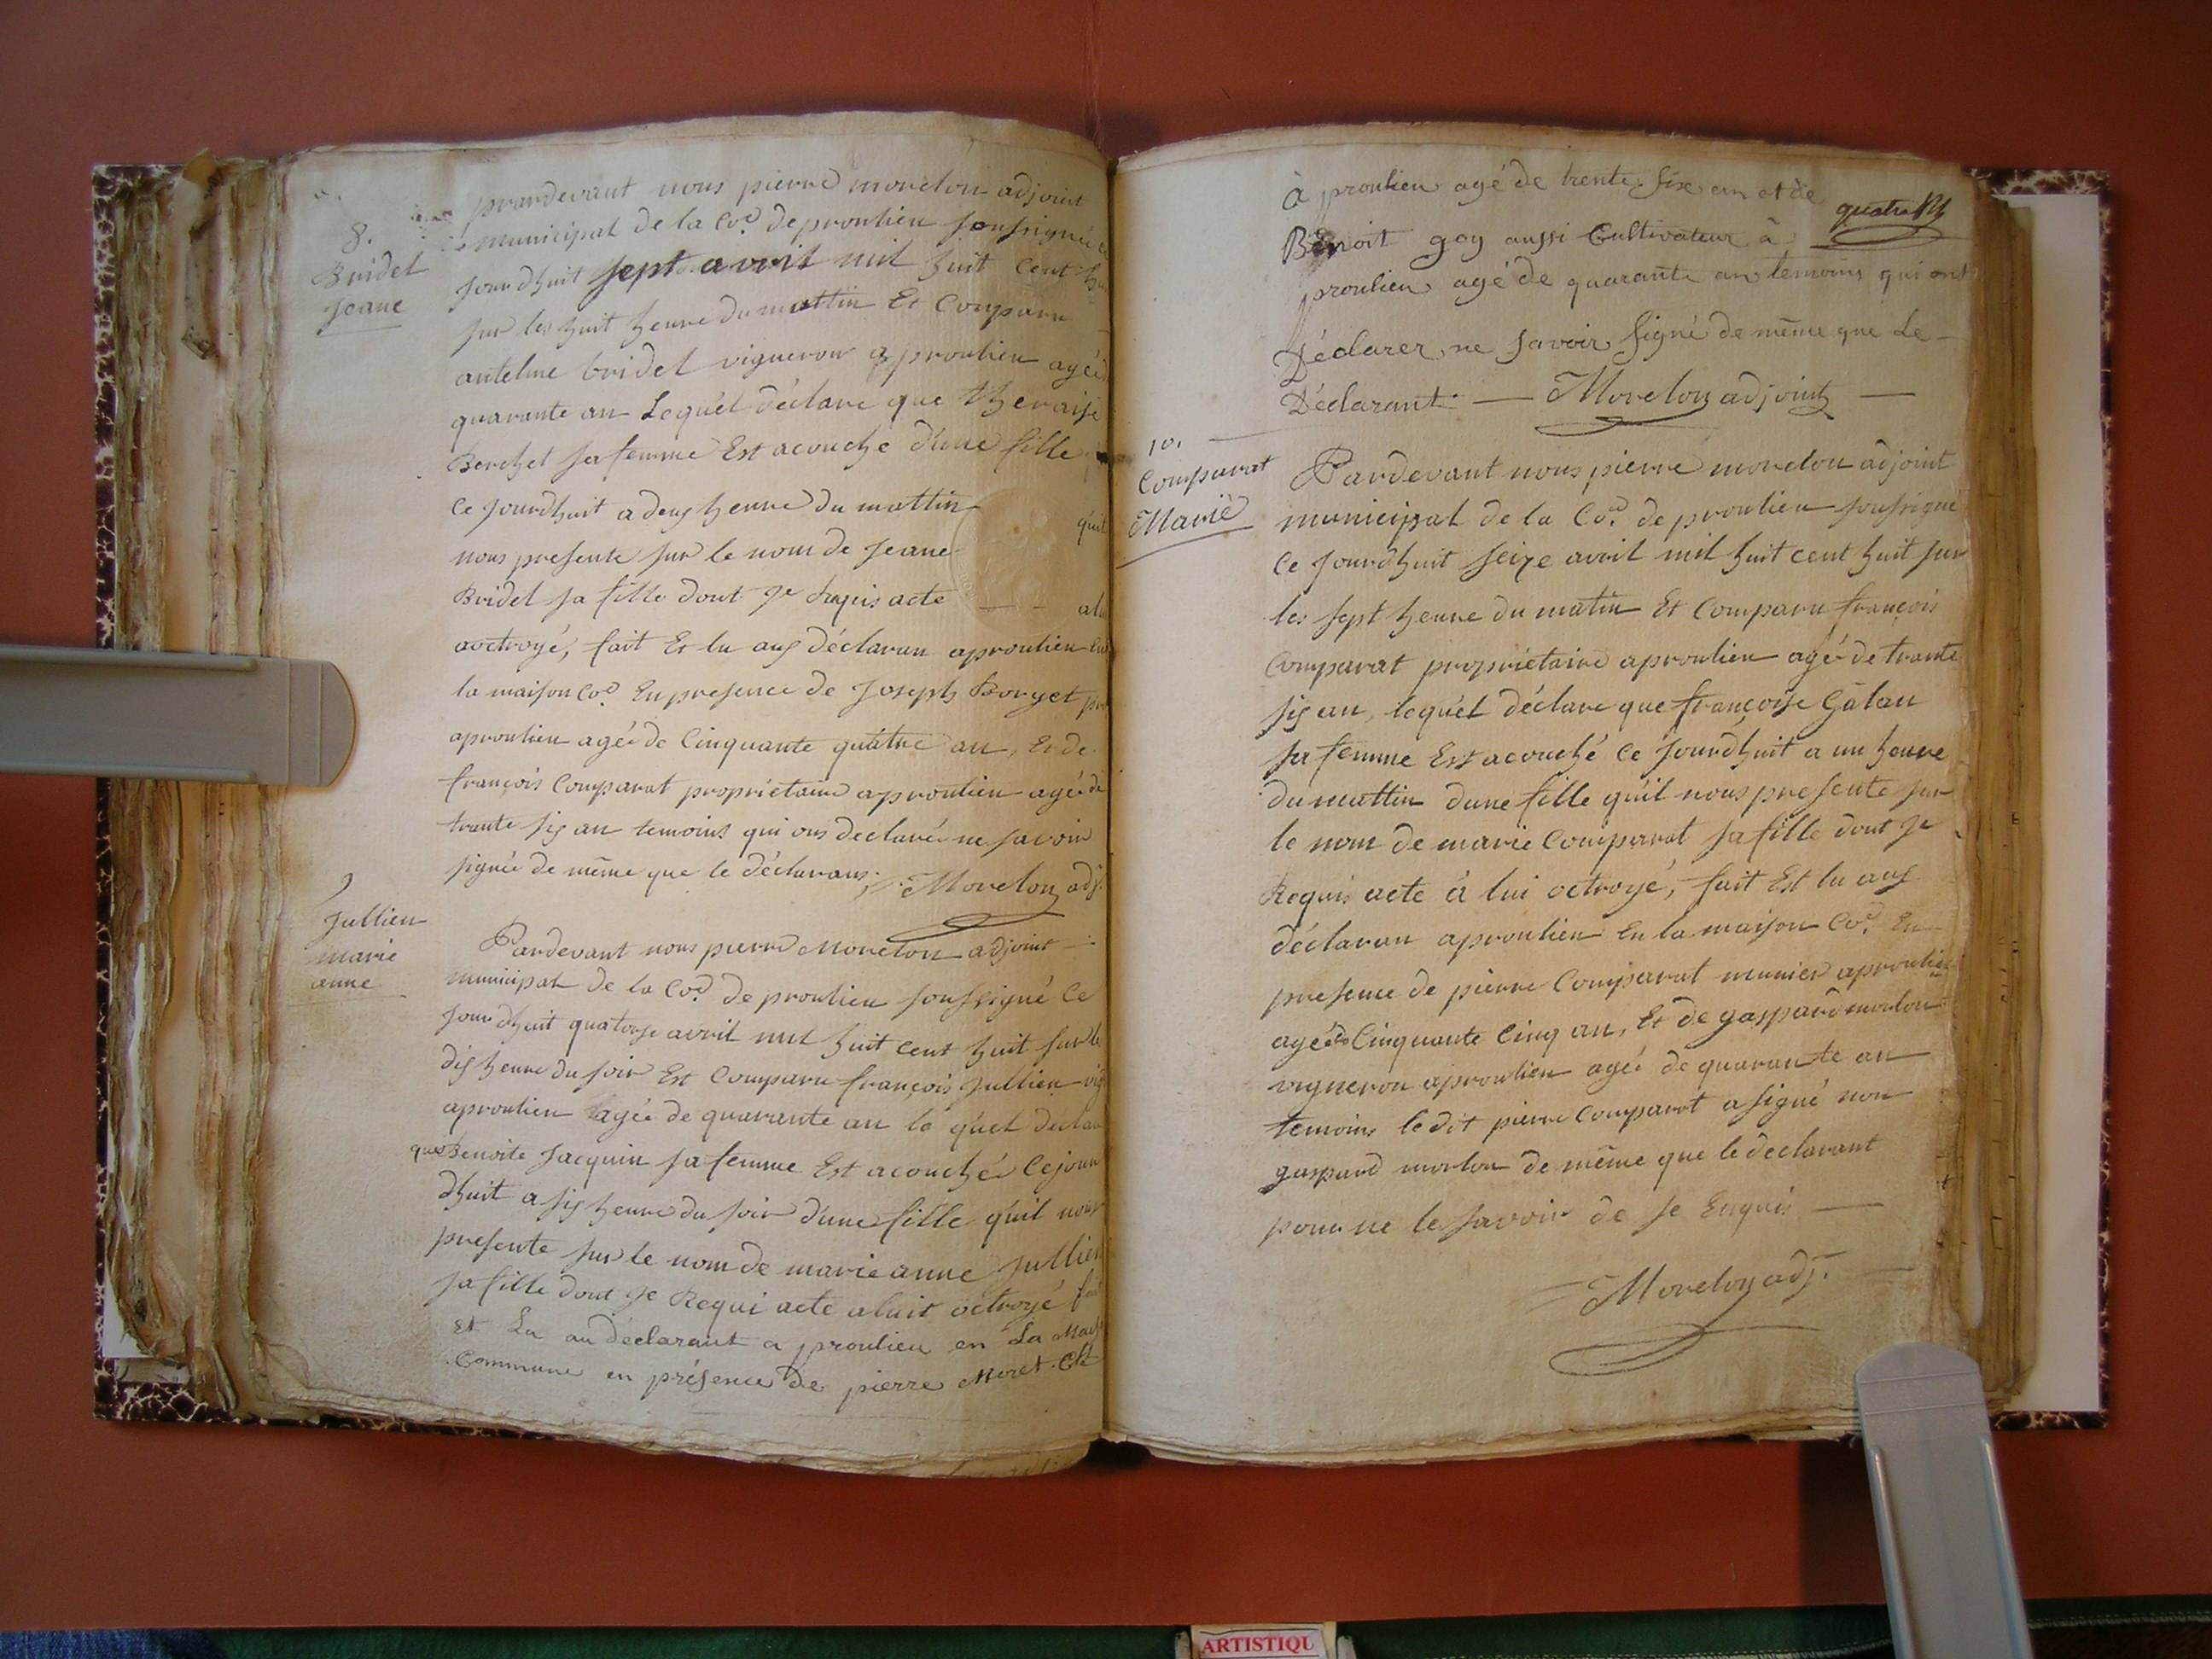 8.
Bridel
Jeane
prardevant nous pierre morelon adjoint
municipal de la Cod. de proulieu soussignée ce
jourdhuit sept avril mil huit Cent
sur les huit heure du mattin Et Comparu
antelme bridel vigneron aproulieu agée
quarante an Lequ'el déclare que theraise
Berchet sa femme Est acouche d'une fille
Ce jourdhuit a deux heure du mattin quil
nous presente sur le nom de Jeane
Bridel sa fille dont Je Requis acte — – alu
aoctroyé, fait Et lu aux déclaran aproulieu En
la maison Cod. En presence de Joseph Borget
aproulieu agée de Cinquante quatre an, Et de
françois Comparat propriétaire aproulieu agée de
trante six an temoins qui ons declarée ne savoir
signée de même que le déclarans, Morelon adj.
9
Jullien
marie
anne
Pardevant nous pierre Morelon adjoint
municipal de la Cod. de proulieu soussigné Ce
jourdhuit quatorse avril mil huit Cent huit sur le
dix heure du soir Est Comparu françois Jullien vig
aproulieu agée de quarante an le qu'el declar
que Benoite Jacquin sa femme Est acouchée Cejour
dhuit a six heure du soir d'une fille qu'il nous
presente sur le nom de marie anne Jullien
sa fille dont Je Requi acte aluit octroyé fait
et Lu au déclarant a proulieu en La Mais
Commune en présence de pierre Moret Clt
à proulieu agé de trente six an et de
quatre
Benoit goy aussi Cultivateur à
proulieu agé de quarante an temoins qui ont
Déclarer ne savoir signé de même que Le
Déclarant — Morelon adjoint —
10.
Comparat
Marie
Pardevant nous pierre morelon adjoint
municipal de la Cod. de proulieu soussigné
Ce jourdhuit seize avril mil huit cent huit sur
les sept heure du matin Et Comparu françois
Comparat propriétaire aproulieu agé de trante
six an, lequ'el déclare que françoise Gâlan
sa femme Est acouché Ce jourdhuit a un heure
du mattin dune fille qu'il nous presente sur
le nom de marie Comparat sa fille dont Je
Requis acte à lui octroyé, fait Est lu aux
déclaran aproulieu En la maison Cod. En
presence de pierre Comparat munier aproulieu
agée de Cinquante Cinq an, Et de gaspard morlon
vigneron aproulieu agée de quarante an
temoins ledit pierre Comparat a signé non
gaspard morlon de même que le declarant
pour ne le savoir de Je Enquis —
Morelon adj.
ARTISTIQU